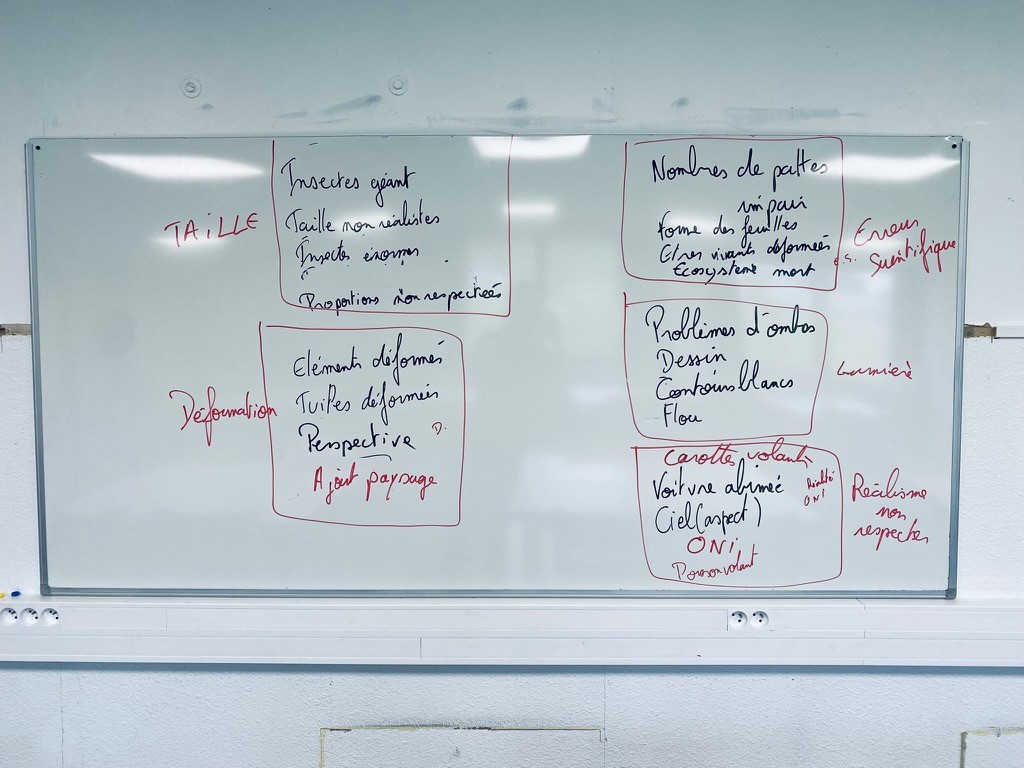 TAILLE
Insectes géant
Taille non réalistes
Insectes énormes
Proportions non respectées
Déformation
Eléments déformés
Tuiles déformées
Perspective
D.
Ajout paysage
Nombres de pattes
impair
Forme des feuilles
Etres vivants déformées
Ecosystème mort
Erreur
Scientifique
Problèmes d'ombos
Dessin
Contours blancs
Flou
Lumière
Carotte volant
Voiture abimée
Ciel (aspect)
ONi
Poisson volant
Réalité
ONI
Réalisme
non
respecter